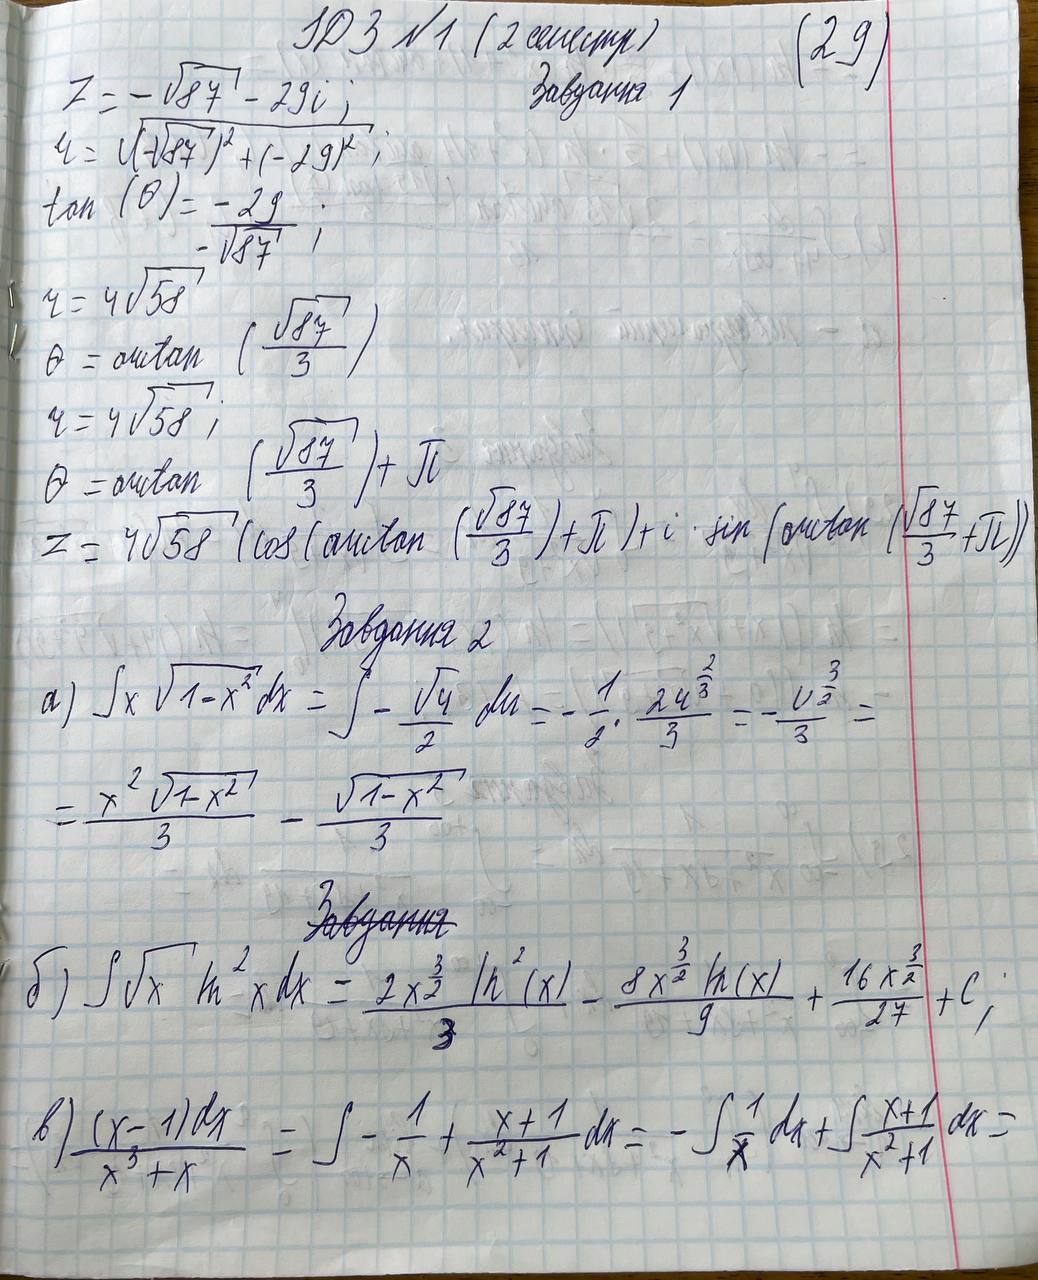 ІДЗ №1 (2 семестр) (29)
Завдання 1
z = -√87 - 29i;
r = √((-√87)² + (-29)²);
tan (θ) = -29/-√87;
r = 4√58
θ = arctan (√87/3)
r = 4√58;
θ = arctan (√87/3) + π
z = 4√58 (cos(arctan (√87/3) + π) + i · sin (arctan (√87/3 + π))
Завдання 2
а) ∫x √(1-x²) dx = ∫ - √u/2 du = - 1/2 · 2u^(2/3)/3 = - u^(3/2)/3 =
= x² √(1-x²)/3 - √(1-x²)/3
Завдання
б) ∫√x ln² x dx = 2x^(3/2) ln²(x)/3 - 8x^(3/2) ln(x)/9 + 16x^(3/2)/27 + C;
в) (x-1)dx/(x³+x) = ∫ - 1/x + (x+1)/(x²+1) dx = - ∫ 1/x dx + ∫ (x+1)/(x²+1) dx =